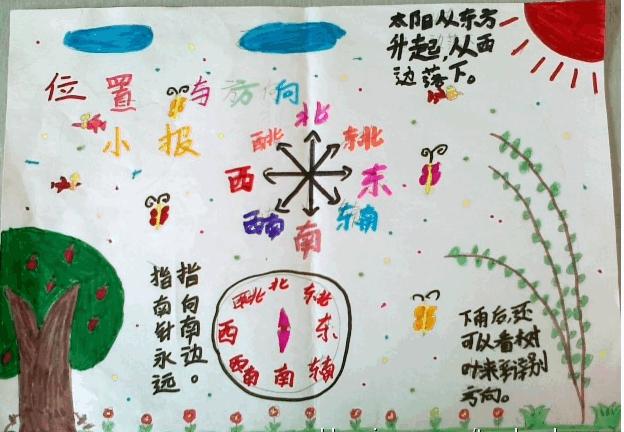 太阳从东方
升起,从西
边落下。
位置与方向
小报
北
西北
东北
西
东
西南
东南
南
西北
北
东北
西
东
西南
南
东南
指南针永远
指向南边。
下雨后,还
可以看树
叶来辨别
方向。